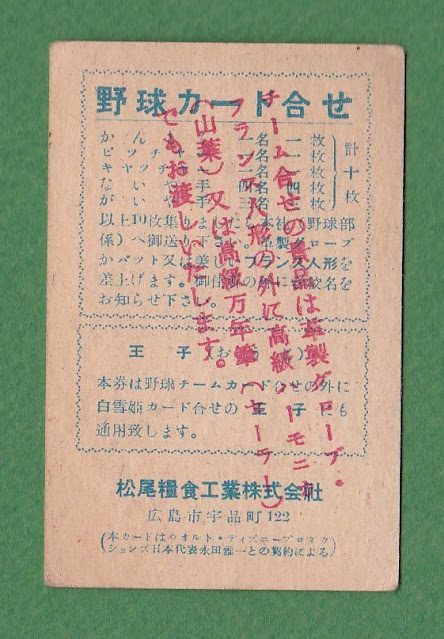 野球カード合せ
かん　　　一名　一枚
ピッチ　　一名　一枚
キャッ　　一名　一枚
ない　や　手　四名　四枚
がい　や　手　三名　三枚
計十枚
以上10枚集りましたら本社(野球部
係)へ御送り下さい。革製グローブ
かバット又は美しいフランス人形を
差上げます。御住所の外に学校名を
お知らせ下さい。
王子(おうじ)
本券は野球チームカード合せの外に
白雪姫カード合せの 王子 にも
通用致します。
松尾糧食工業株式会社
広島市宇品町122
(本カードはウオルト・ディズニープロダク
ションズ日本代表永田雅一との契約による)
チーム合せの賞品は革製グローブ・
フランス人形の外に高級ハーモニカ
(山葉)又は高級万年筆(セーラー)
でもお渡しいたします。